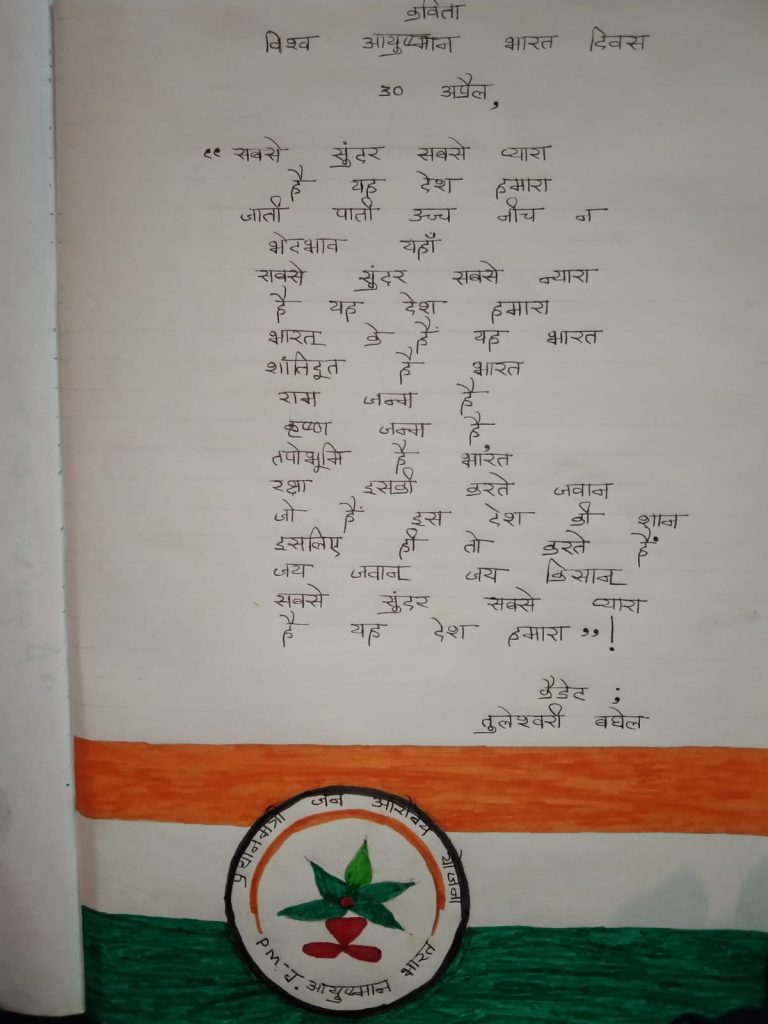 कविता
विश्व आयुष्मान भारत दिवस
30 अप्रैल,
“ सबसे सुंदर सबसे प्यारा
है यह देश हमारा
जाती पाती उच्च नीच न
भेदभाव यहाँ
सबसे सुंदर सबसे न्यारा
है यह देश हमारा
भारत के हैं यह भारत
शांतिदूत है भारत
राम जन्म है
कृष्ण जन्म है,
तपोभूमि है भारत
रक्षा इसकी करते जवान
जो हैं इस देश की शान
इसलिए ही तो करते हैं
जय जवान जय किसान
सबसे सुंदर सबसे प्यारा
है यह देश हमारा ”!
कैडेट ;
तुलेश्वरी बघेल
प्रधानमंत्री जन आरोग्य योजना
P.M-J. आयुष्मान भारत